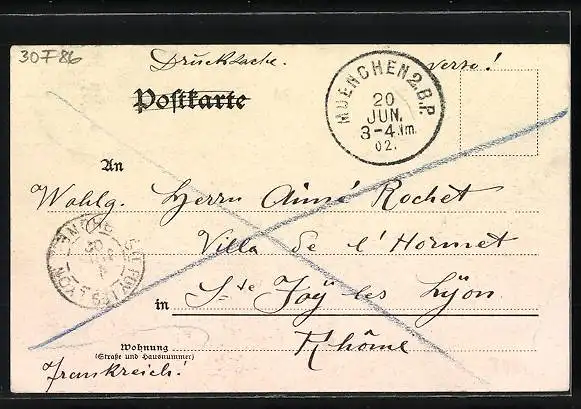 30F86
Drucksache. verso!
Postkarte
MUENCHEN 2. B.P.
20
JUN.
3-4 Nm.
02.
An
Wohlg. Herrn Aimé Rochet
Villa de l'Hormet
in Ste Foÿ les Lÿon
Rhône
Wohnung
(Straße und Hausnummer)
Frankreich!
STE FOY LES LYON
RHONE